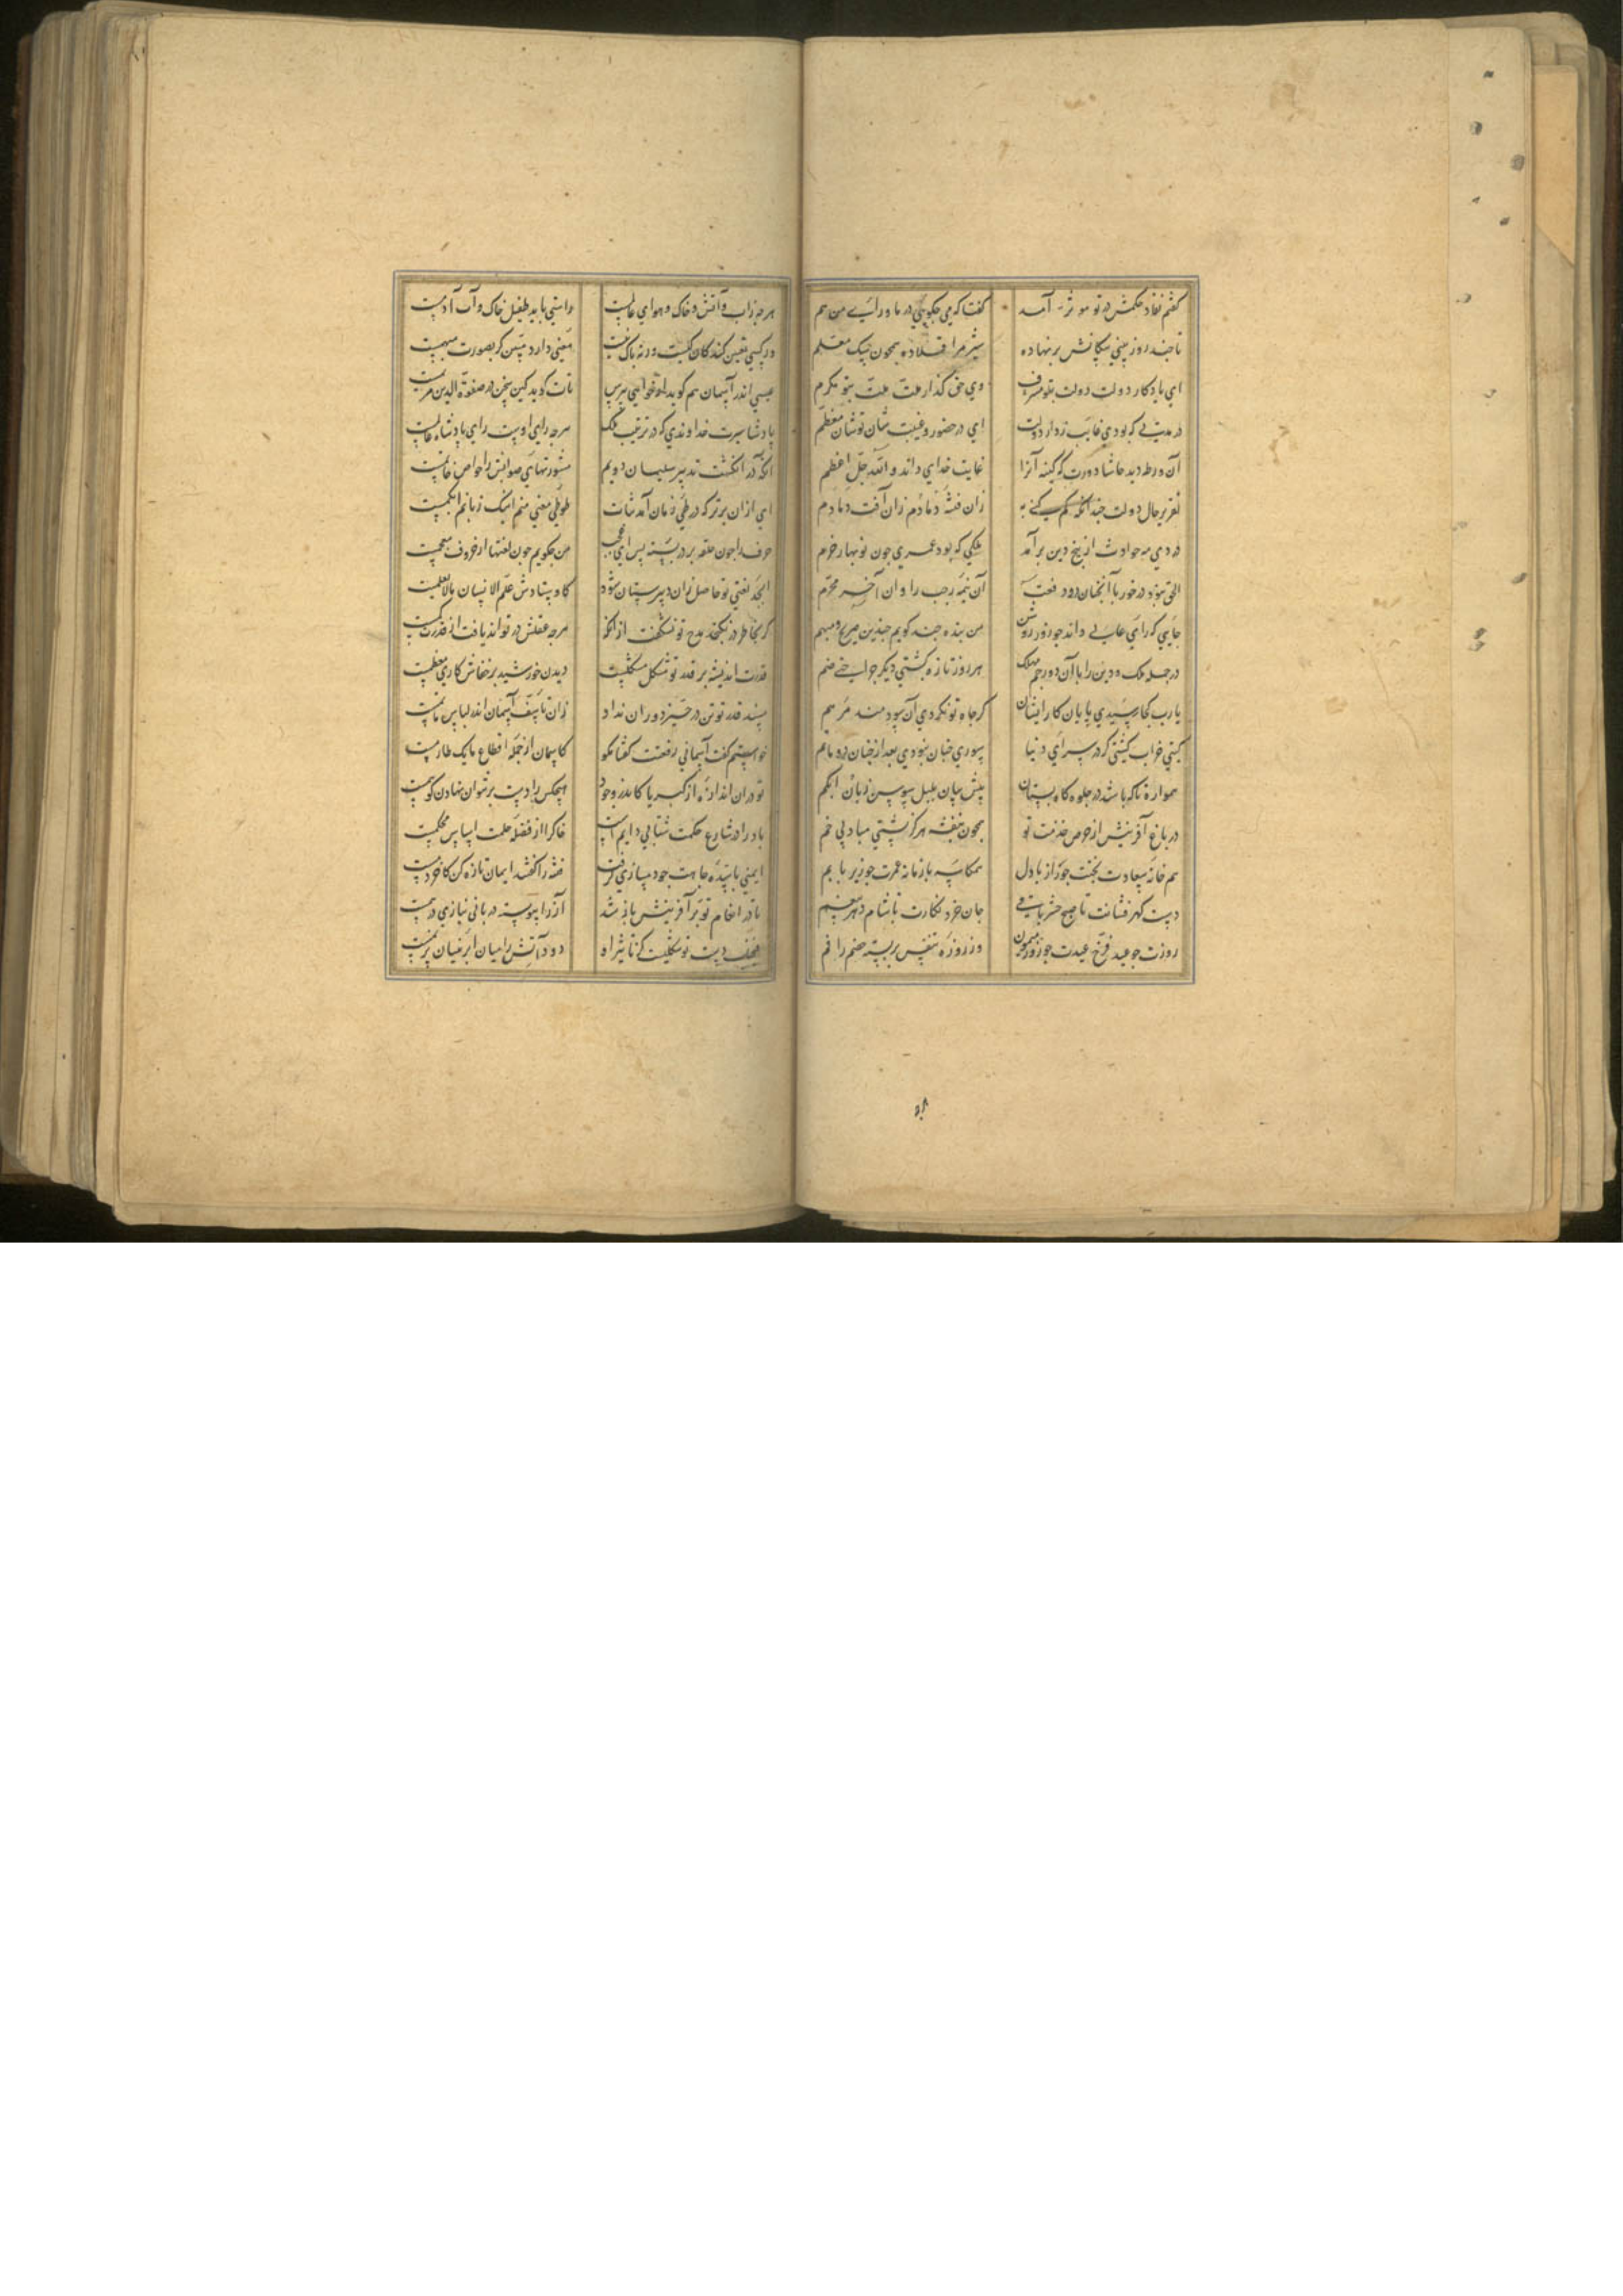 کفتم نفاذ حکمش در تو موثر آمد
کفت که می چکویی در ما ورای من هم
تا چند روز بینی سکانش برنهاده
شیر مرا قلاده همچون سک معلم
ای یادکار دولت دولت بتو مشرف
وی حق کذار ملت ملت بتو مکرم
در مدتی که بودی غایب ز دار دولت
ای در حضور و غیبت شان تو شان معظم
آن ورطه دید حاشا دورت که کینه آنرا
غایت خدای داند والله جل اعظم
تقریر حال دولت چندانکه کم کنی به
زان فتنه دمادم زان آفت دمادم
در دی مه حوادث از بیخ دین برآمد
ملکی که بود عمری چون نوبهار خرم
الحق نبود در خور با آنچنان دو رفعت
آن نیمه رجب را وان آخر محرم
جایی که رای عالی داند چو روز روشن
من بنده چند کویم چندین صریح و مبهم
در جمله ملک و دین را با آن دو رجم مهلک
هر روز تازه کشتی دیکر جراحتی ضم
یارب کجا رسیدی پایان کار ایشان
کر جاه تو نکردی آن سودمند مرهم
کیتی خراب کشتی کر در سرای دنیا
سوری چنان نبودی بعد از چنان دو ماتم
همواره تا که باشد در جلوه کاه بستان
پیش سان بلبل سوسن زبان ابکم
در باغ آفرینش از حرص خدمت تو
همچون بنفشه هرکز پشتی مباد بی خم
هم خانه سعادت بختت چو راز با دل
همکاسه با زمانه عمرت چو زیر با بم
دست کهرفشانت تا صبح حشر باقی
جان خرد نکارت تا شام دهر معصم
روزت چو عید فرخ عیدت چو روز میمون
وز روزه تنفس بربسته خصم را فم
هرچه زاب و آتش و خاک و هوای عالمست
راستی باید طفیل خاک و آب آدمست
ور کسی تعیین کند کان کیست ورنه باک نیست
معنی دارد مبین کر بصورت مبهمست
عیسی اندر آسمان هم کوید ار خواهی بپرس
تات کوید کین سخن در صفوة الدین مریمست
پادشا سیرت خداوندی که در ترتیب ملک
هرچه رای اوست رای پادشاه عالمست
آنکه در انکشت تدبیر سلیمان دویم
مشورتهای صوابش را خواص خاتمست
ای از آن برتر که در طی زبان آمد ثنات
طوطی معنی منم اینک زبانم ابکمست
حرف را چون حلقه بر در بسته بس ای عجب
من چکویم چون لغتها از حروف معجمست
ابجد نعتی تو حاصل زان دبیرستان شود
کاوستادش علم الانسان ما لم یعلمست
کر بخاطر در نکنجد مدح تو نشکفت از آنکه
هرچه عقلش در تواند یافت از قدرت کمست
قدرت اندیشه بر قدر تو شکل مشکلیست
دیدن خورشید بر خفاش کاری معظمست
مسند قدر تو تن در حیز دوران نداد
زان تاسف آسمان اندر لباس ماتمست
خواستم کفت آسمانی رفعتت کفتا مکو
کاسمان از جمله اقطاع ما یک طارمست
تو در آن اندازه از کبریا کاندر وجود
هیچکس را دست بر نتوان نهادن کو همست
باد را در شارع حکمت شتابی دایم است
خاک را از فضله حلمت اساس محکمست
ایمنی با سده جاهت چو دمسازی کرفت
فتنه را کفتند ایمان تازه کن کاخر دمست
تا در انعام تو بر آفرینش باز شد
آز را پیوسته در با بی نیازی در همست
نیک دست تو نیست کز تاثیر او
دود آتش را میان ابر نیسان پر نمست